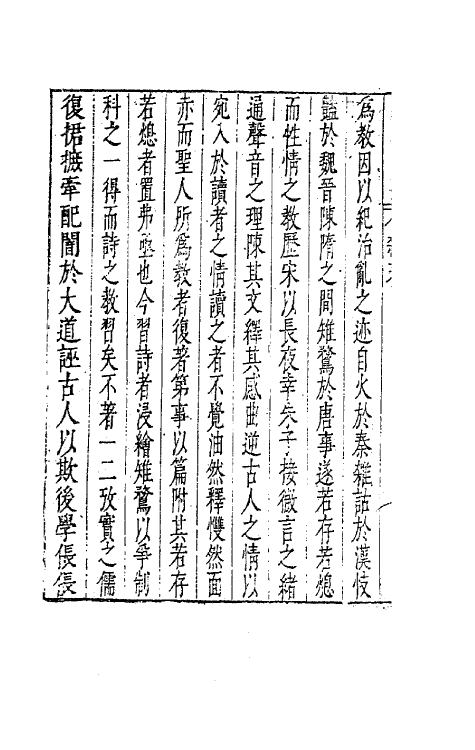 為教因以紀治亂之迹自火於秦雜詁於漢忮
豔於魏晉陳隋之間雉鶩於唐事遂若存若熄
而性情之教歷宋以長夜幸朱子接微言之緒
通聲音之理陳其文釋其感曲逆古人之情以
宛入於讀者之情讀之者不覺油然釋戄然面
赤而聖人所為教者復著第事以篇附其若存
若熄者置弗亟也今習詩者浸繪雉鶩以爭制
科之一得而詩之教習矣不著一二攷實之儒
復捃摭牽配闇於大道誣古人以欺後學倀倀